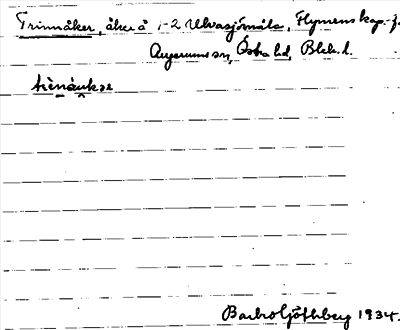 Trinnåker, åker å 1-2 Ulvasjömåla, Flymens kap.-f.
Augerums sn, Östra hd, Blek. l.
Barbro Götherberg 1934.